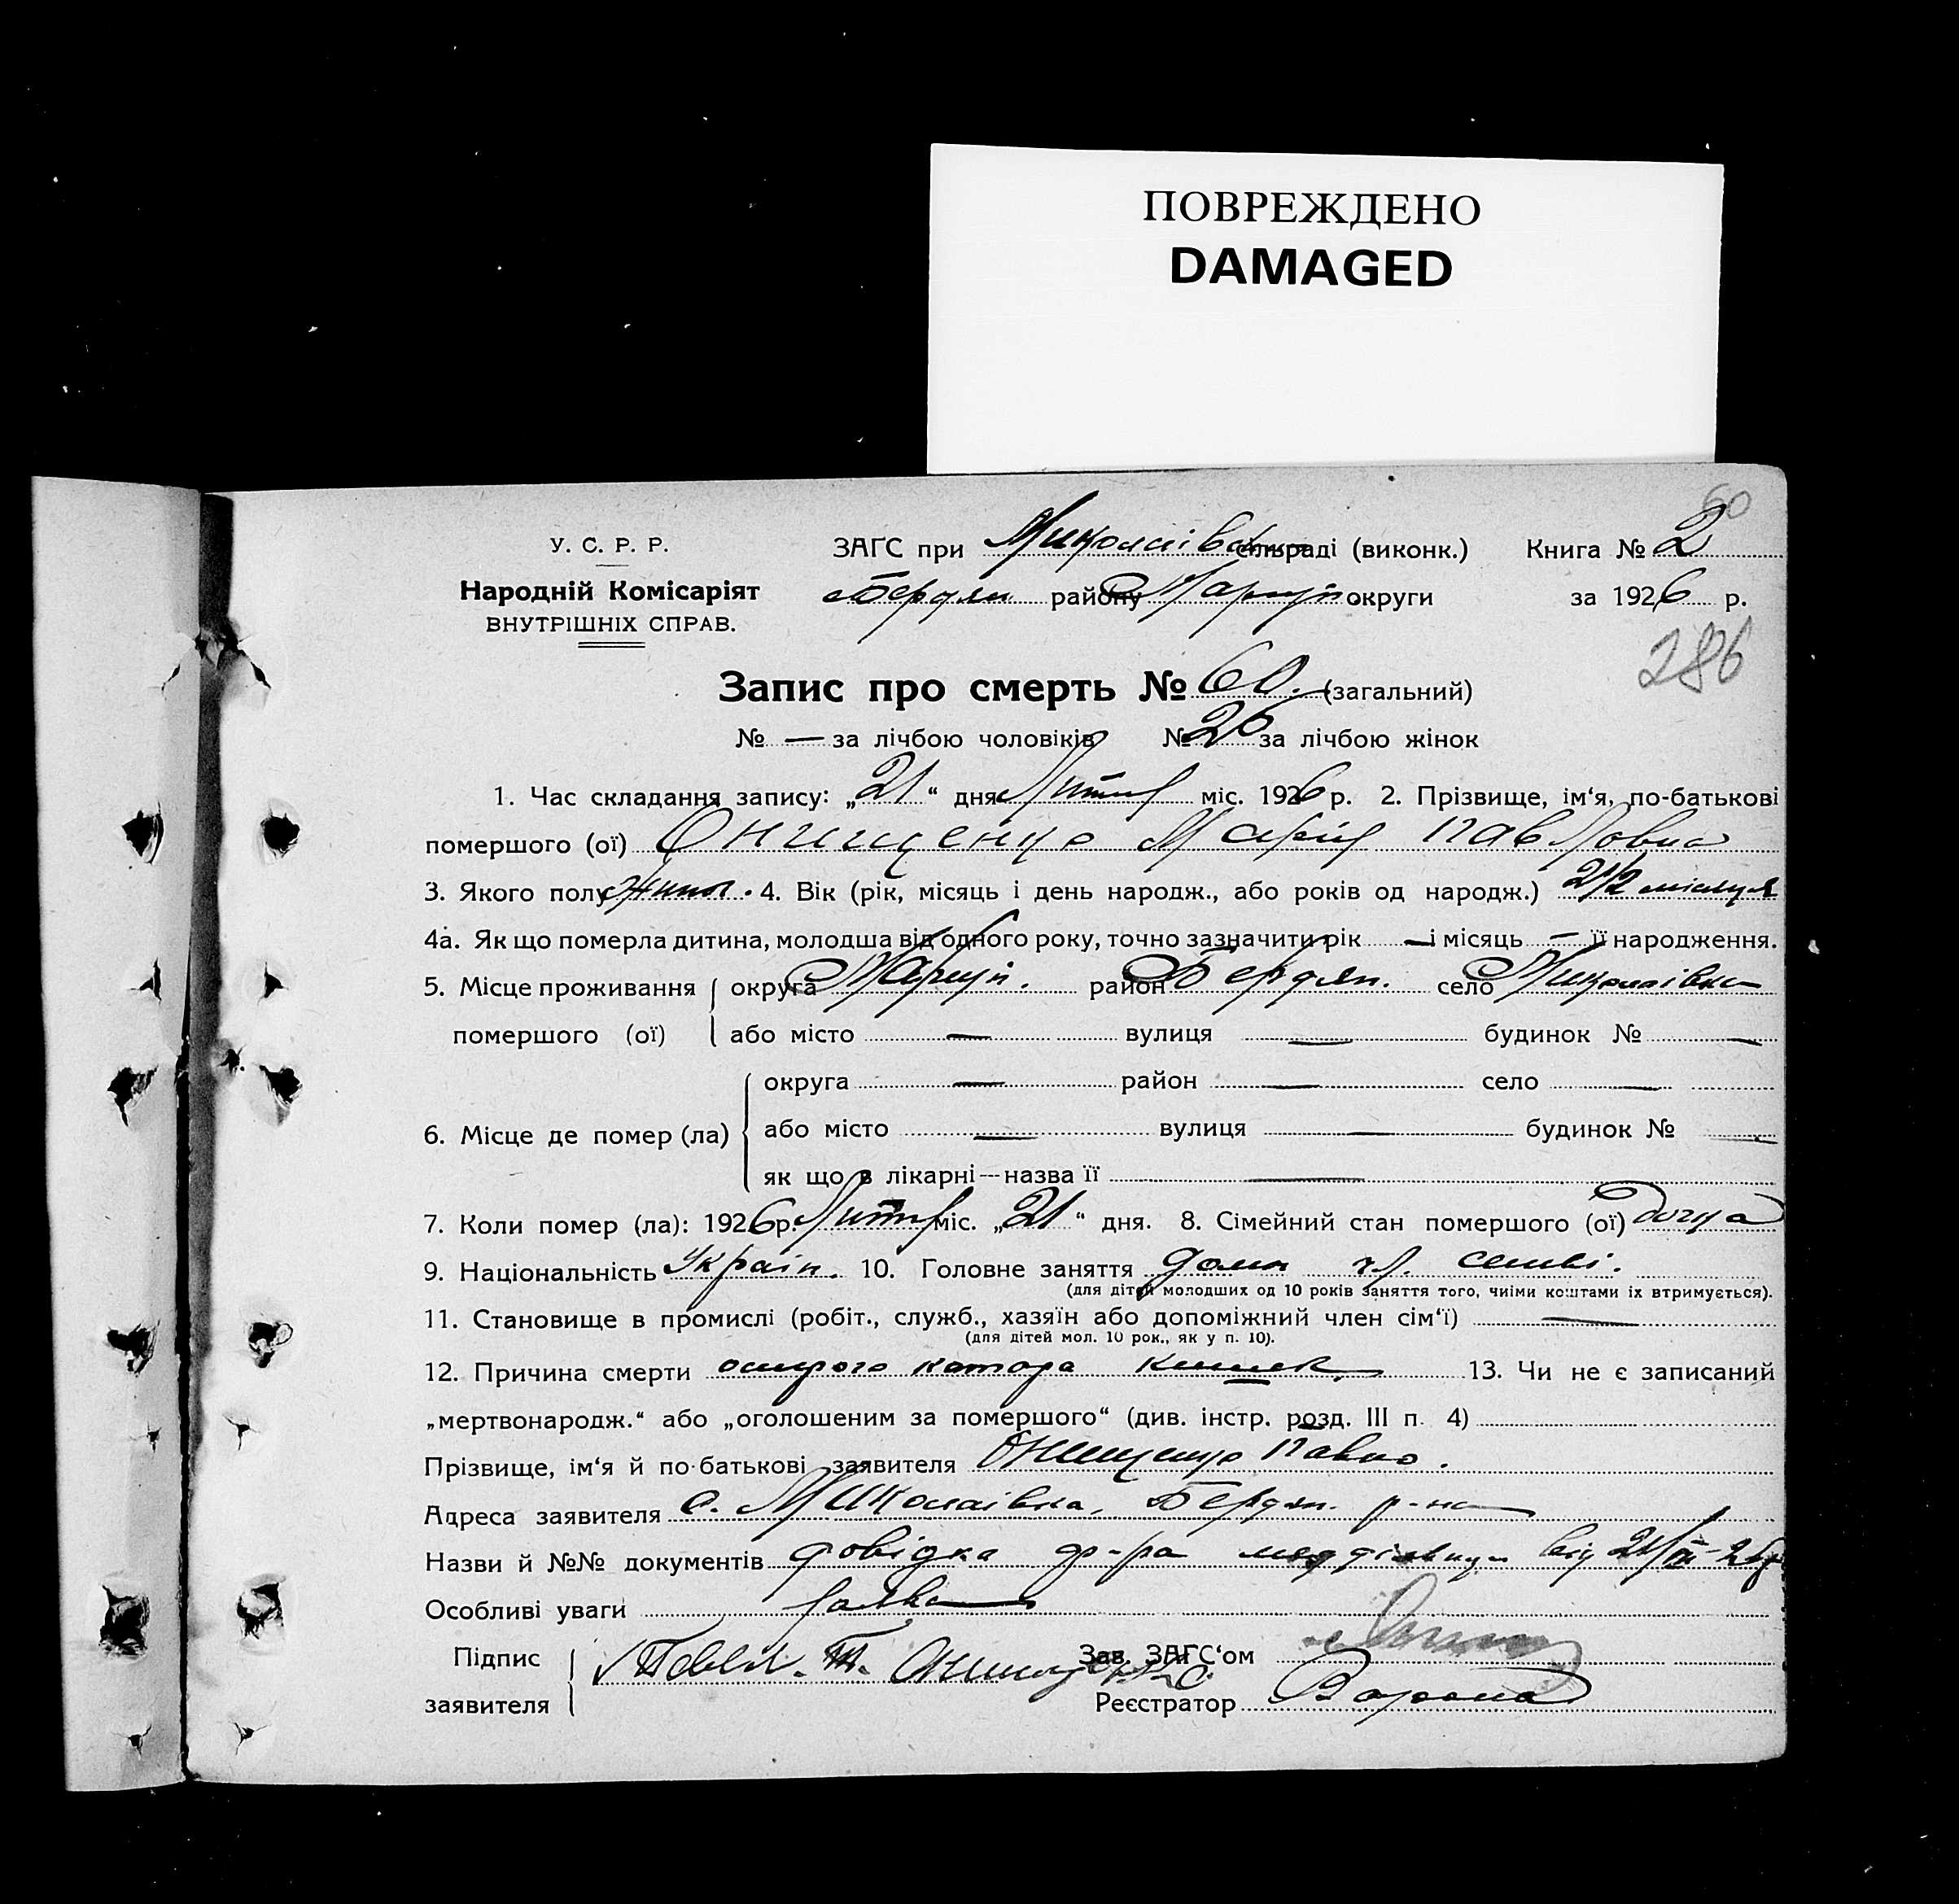 ПОВРЕЖДЕНО
DAMAGED
60
У. С. Р. Р. ЗАГС при Миколаівській сільраді (виконк.) Книга № 2
Народній Комісаріят Бердян району Маріуп округи за 1926 р.
ВНУТРІШНІХ СПРАВ.
286
Запис про смерть № 60. (загальний)
№ — за лічбою чоловіків № 26 за лічбою жінок
1. Час складання запису: „21“ дня міс. 1926 р. 2. Прізвище, ім‘я, по-батькові
помершого (ої) Онищенко Марія Павловна
3. Якого полу жіноч. 4. Вік (рік, місяць і день народж., або років од народж.) 2 1/2 місяця
4а. Як що померла дитина, молодша від одного року, точно зазначити рік — і місяць — її народження.
5. Місце проживання округа Маріуп. район Бердян. село Миколаівка
помершого (ої) або місто — вулиця — будинок № —
округа — район — село —
6. Місце де помер (ла) або місто — вулиця — будинок № —
як що в лікарні—назва її —
7. Коли помер (ла): 1926 р. міс. „21“ дня. 8. Сімейний стан помершого (ої) дочка
9. Національність Україн. 10. Головне заняття дома
(для дітей молодших од 10 років заняття того, чиїми коштами їх втримується).
11. Становище в промислі (робіт., служб., хазяїн або допоміжний член сім‘ї) —
(для дітей мол. 10 рок., як у п. 10).
12. Причина смерти острого катара кишек. 13. Чи не є записаний
„мертвонародж.“ або „оголошеним за помершого“ (див. інстр. розд. III п. 4)
Прізвище, ім‘я й по-батькові заявителя Онищенко Павло.
Адреса заявителя с. Миколаівка, Бердян. р-на
Назви й №№ документів довідка др-ра від 21/
Особливі уваги
Підпис Павел. Т. Онищенко. Зав. ЗАГС‘ом
заявителя Реєстратор